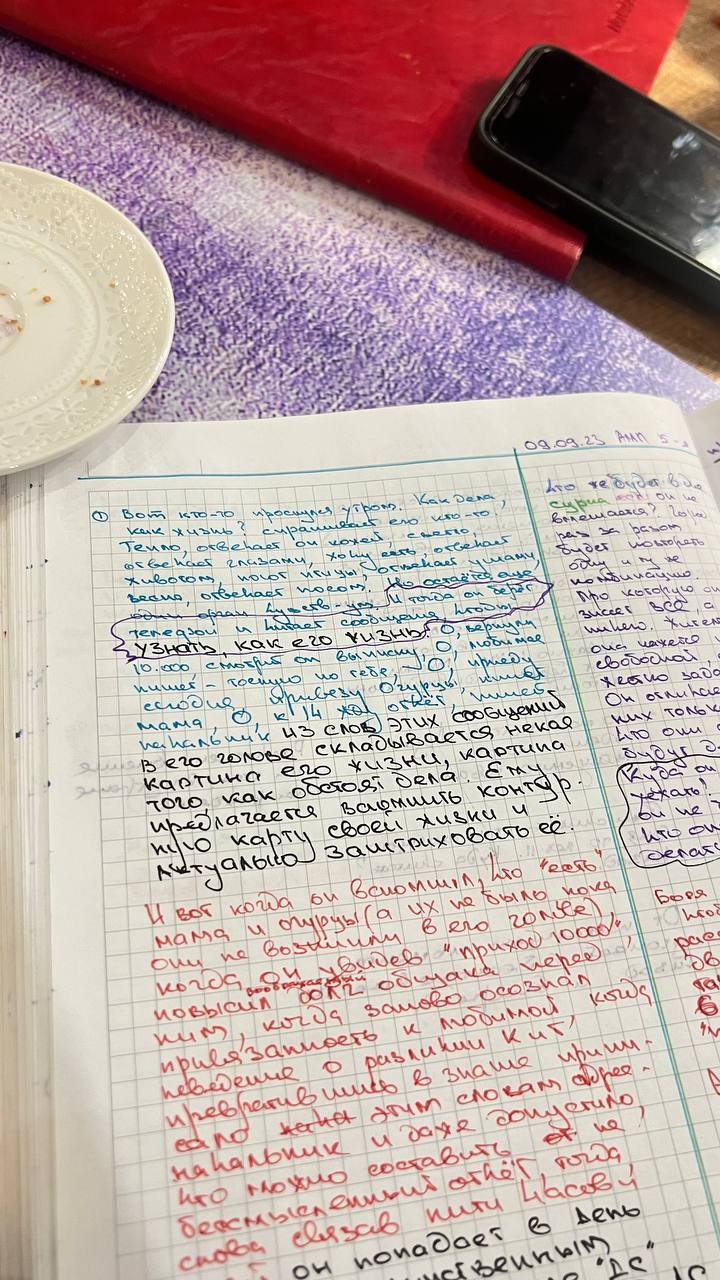 09.09.23
① Вот кто-то проснулся утром. Как дела,
как жизнь? спрашивает его кто-то,
Тепло, отвечает он кожей, светло,
отвечает глазами, хочу есть, отвечает
животом, поют птицы, отвечает ушами,
весна, отвечает носом. Но остаётся ещё
один орган чувств - ум. И тогда он берёт
телефон и читает сообщения, чтобы
узнать, как его жизнь. О, вернули
10.000 смотрит он выписку, О, любимая
пишет - тоскую по тебе, О, приеду
сегодня, привезу огурцы, пишет
мама, О, к 14 жду отчёт, пишет
начальник из слов этих сообщений
в его голове складывается некая
картина его жизни, картина
того как обстоят дела. Ему
предлагается вспомнить контур-
ную карту своей жизни и
актуально заштриховать её.
И вот когда он вспомнил, что "есть"
мама и огурцы (а их не было пока
они не возникли в его голове)
когда он увидев "приход 10000"
повысил воображаемый долг общака перед
ним, когда заново осознал
привязанность к любимой когда
неведение о различии
превратившись в знание
этим словам
начальник и даже допустило,
что можно составить не
бессмысленный отчёт, тогда
снова связав нити
он попадает в день
"ДС"
Что же будет в
он не
вмешается?
раз за разом
будет повторять
одну и ту же
комбинацию.
Про которую он
знает всё, а
ничего.
она кажется
свободной,
жёстко
Он отличает
них только
что они
будут
Куда он
уехать?
он не
что он
делать
Боря